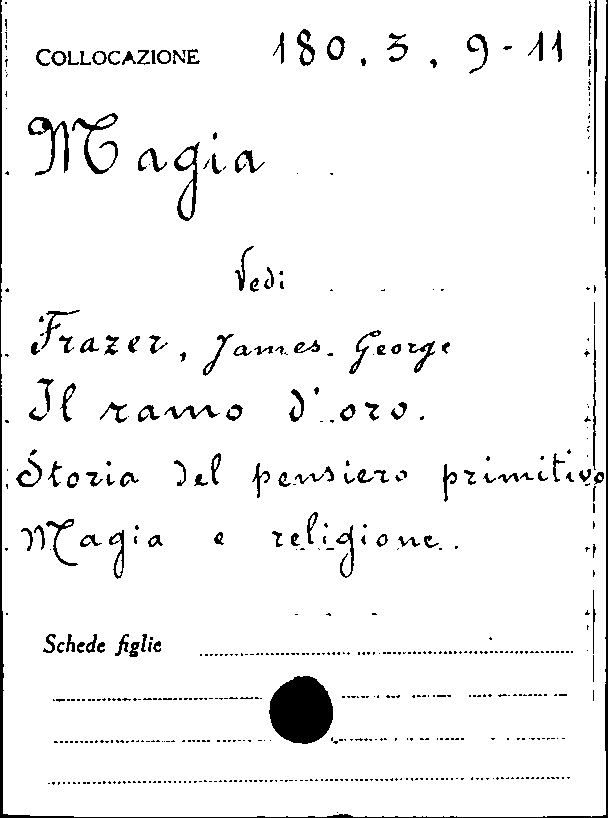 COLLOCAZIONE 180. 3. 9-11
Magia
Vedi
Frazer, James. George
Il ramo d'oro.
Storia del pensiero primitivo
Magia e religione.
Schede figlie